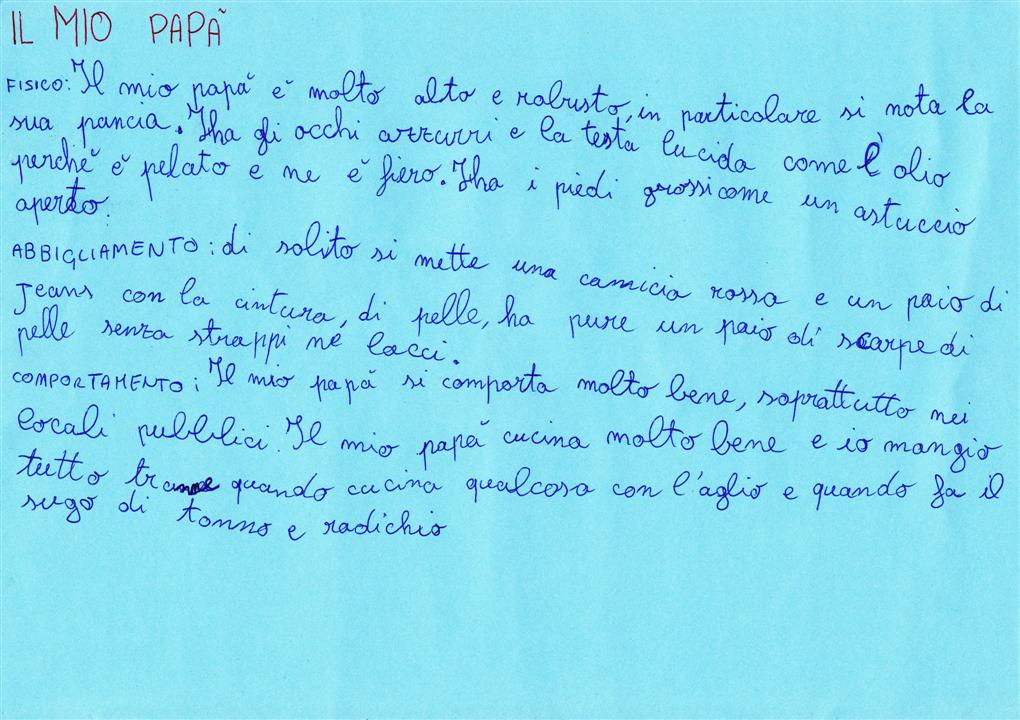 IL MIO PAPÀ
FISICO: Il mio papà è molto alto e robusto, in particolare si nota la
sua pancia. Iha gli occhi azzurri e la testa lucida come l'olio
perché è pelato e ne è fiero. Iha i piedi grossi come un astuccio
aperto.
ABBIGLIAMENTO: di solito si mette una camicia rossa e un paio di
Jeans con la cintura, di pelle, ha pure un paio di scarpe di
pelle senza strappi né lacci.
COMPORTAMENTO: Il mio papà si comporta molto bene, soprattutto nei
locali pubblici. Il mio papà cucina molto bene e io mangio
tutto tranne quando cucina qualcosa con l'aglio e quando fa il
sugo di tonno e radichio